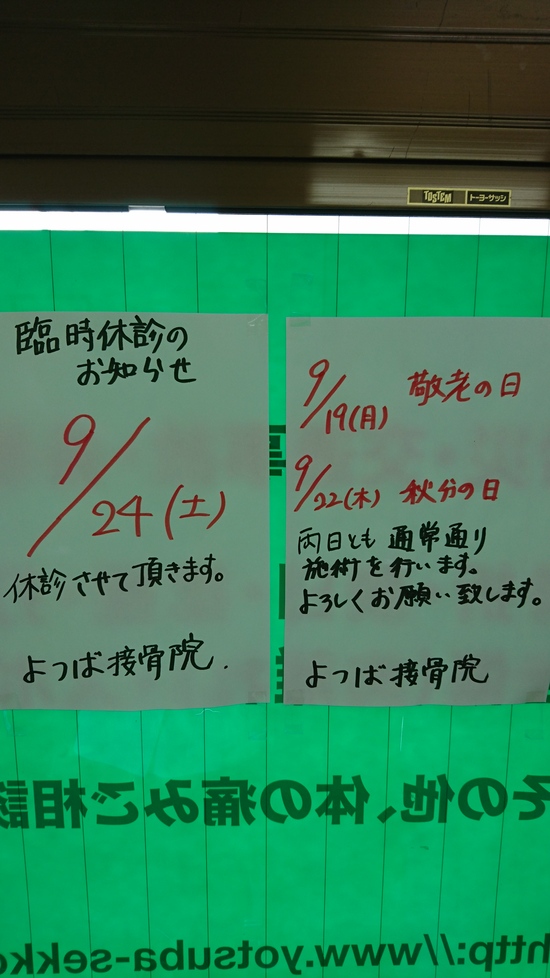 TOSTEM トーヨーサッシ
臨時休診の
お知らせ
9/24(土)
休診させて頂きます。
よつば接骨院.
9/19(月) 敬老の日
9/22(木) 秋分の日
両日とも通常通り
施術を行います。
よろしくお願い致します。
よつば接骨院
その他、体の痛みご相談
http://www.yotsuba-sekko